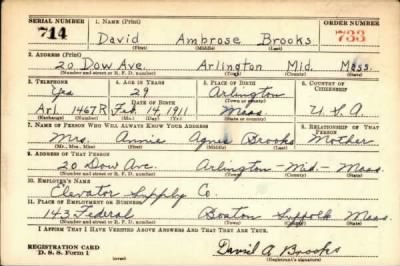 SERIAL NUMBER 1. NAME (Print) ORDER NUMBER
714 David Ambrose Brooks 733
(First) (Middle) (Last)
2. ADDRESS (Print)
20 Dow Ave. Arlington Mid. Mass.
(Number and street or R. F. D. number) (Town) (County) (State)
3. TELEPHONE 4. AGE IN YEARS 5. PLACE OF BIRTH 6. COUNTRY OF CITIZENSHIP
Yes 29 Arlington
DATE OF BIRTH (Town or county)
Arl. 1467R Feb. 14, 1911 Mass U.S.A
(Exchange) (Number) (Mo.) (Day) (Yr.) (State or country)
7. NAME OF PERSON WHO WILL ALWAYS KNOW YOUR ADDRESS 8. RELATIONSHIP OF THAT PERSON
Mrs. Annie Agnes Brooks Mother
(Mr., Mrs., Miss) (First) (Middle) (Last)
9. ADDRESS OF THAT PERSON
20 Dow Ave. Arlington - Mid - Mass.
(Number and street or R. F. D. number) (Town) (County) (State)
10. EMPLOYER'S NAME
Elevator Supply Co.
11. PLACE OF EMPLOYMENT OR BUSINESS
143 Federal Boston Suffolk Mass.
(Number and street or R. F. D. number) (Town) (County) (State)
I AFFIRM THAT I HAVE VERIFIED ABOVE ANSWERS AND THAT THEY ARE TRUE.
REGISTRATION CARD
D. S. S. Form 1 David A Brooks
(over) (Registrant's signature)